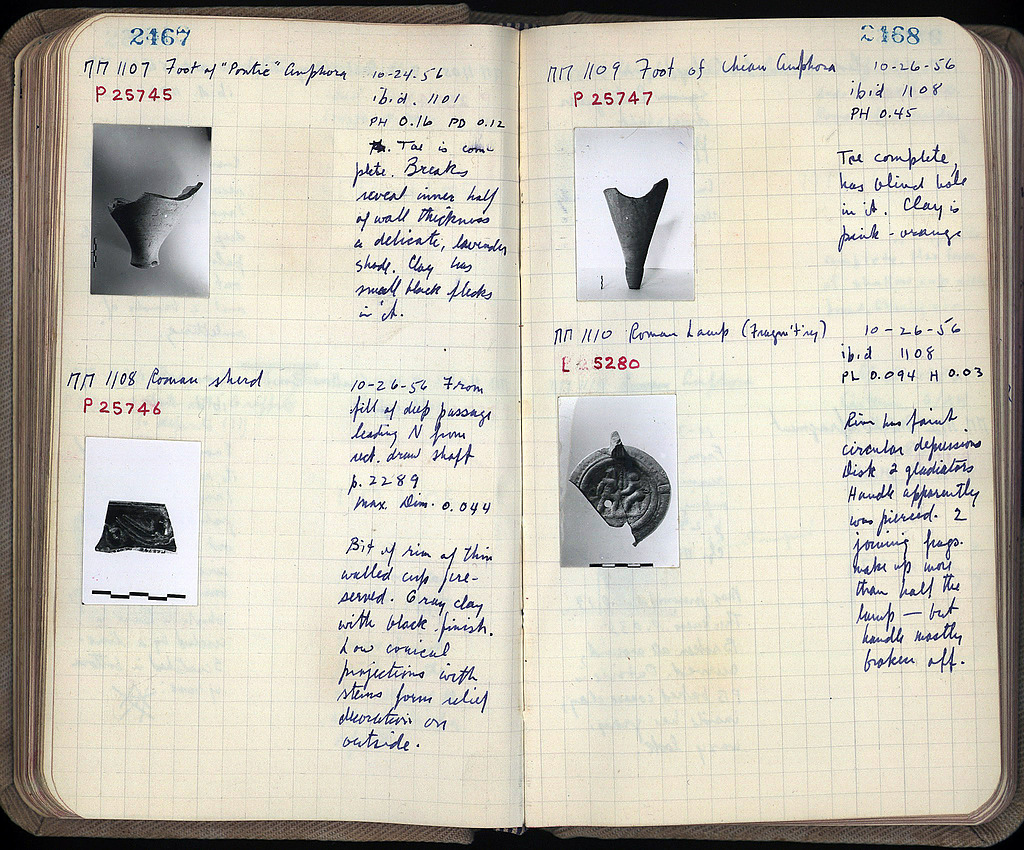 2467
ΠΠ 1107 Foot of "Pontic" Amphora
P 25745
10-24-56
ibid. 1101
PH 0.16 PD 0.12
Toe is com-
plete. Breaks
reveal inner half
of wall thickness
a delicate, lavender
shade. Clay has
small black flecks
in it.
ΠΠ 1108 Roman sherd
P 25746
10-26-56 From
fill of deep passage
leading N from
rect. draw shaft
p. 2289
Max. Dim. 0.044
Bit of rim of thin
walled cup pre-
served. Gray clay
with black finish.
Low conical
projections with
stems form relief
decoration on
outside.
2468
ΠΠ 1109 Foot of Chian Amphora
P 25747
10-26-56
ibid 1108
PH 0.45
Toe complete,
has blind hole
in it. Clay is
pink-orange
ΠΠ 1110 Roman Lamp (Fragm't'ry)
L 5280
10-26-56
ibid 1108
PL 0.094 H 0.03
Rim has faint
circular depressions
Disk 2 gladiators
Handle apparently
was pierced. 2
joining frags.
make up more
than half the
lamp — but
handle mostly
broken off.